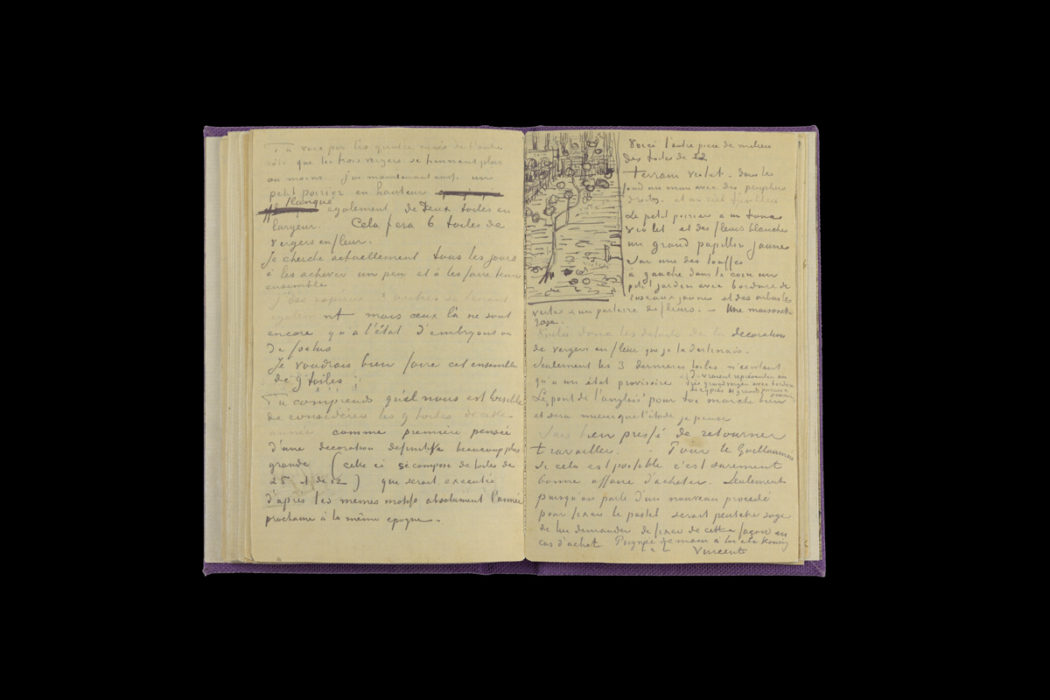 Tu vois par les quatre mots de l'autre
côté que les trois vergers se tiennent plus
ou moins. j'ai maintenant aussi un
petit poirier en hauteur
flanqué également de deux toiles en
largeur. Cela fera 6 toiles de
vergers en fleur.
Je cherche actuellement tous les jours
à les achever un peu et à les faire tenir
ensemble.
J'ose espérer 3 autres se tenant
également mais ceux là ne sont
encore qu'à l'état d'embryons ou
de fœtus
Je voudrais bien faire cet ensemble
de 9 toiles
Tu comprends qu'il nous est loisible
de considérer les 9 toiles de cette
année comme première pensée
d'une decoration définitive beaucoup plus
grande (celle ci se compose de toiles de
25 et de 12) qui serait executée
d'après les mêmes motifs absolument l'année
prochaine à la même epoque.
Voici l'autre piece de milieu
des toiles de 12
terrain violet. dans le
fond un mur avec des peupliers
droits. et un ciel très bleu
Le petit poirier a un tronc
violet et des fleurs blanches
un grand papillon jaune
sur une des touffes
à gauche dans le coin un
petit jardin avec bordure de
roseaux jaunes et des arbustes
verts & un parterre de fleurs. — Une maisonnette
rose.
Voilà donc les details de la decoration
de vergers en fleur que je te destinais.
Seulement les 3 dernieres toiles n'existent
qu'à un état provisoire
devraient représenter un
très grand verger avec bordure
de cyprès & grands poiriers &
pommiers
Le 'pont de l'anglais' pour toi marche bien
et sera mieux que l'étude je pense
Suis bien pressé de retourner
travailler. Pour le Guillaumin
si cela est possible c'est surement
bonne affaire d'acheter. Seulement
puisqu'on parle d'un nouveau procédé
pour fixer le pastel serait peutetre sage
de lui demander de fixer de cette façon en
cas d'achat Poignée de main à toi et à Koning
t. à t. Vincent